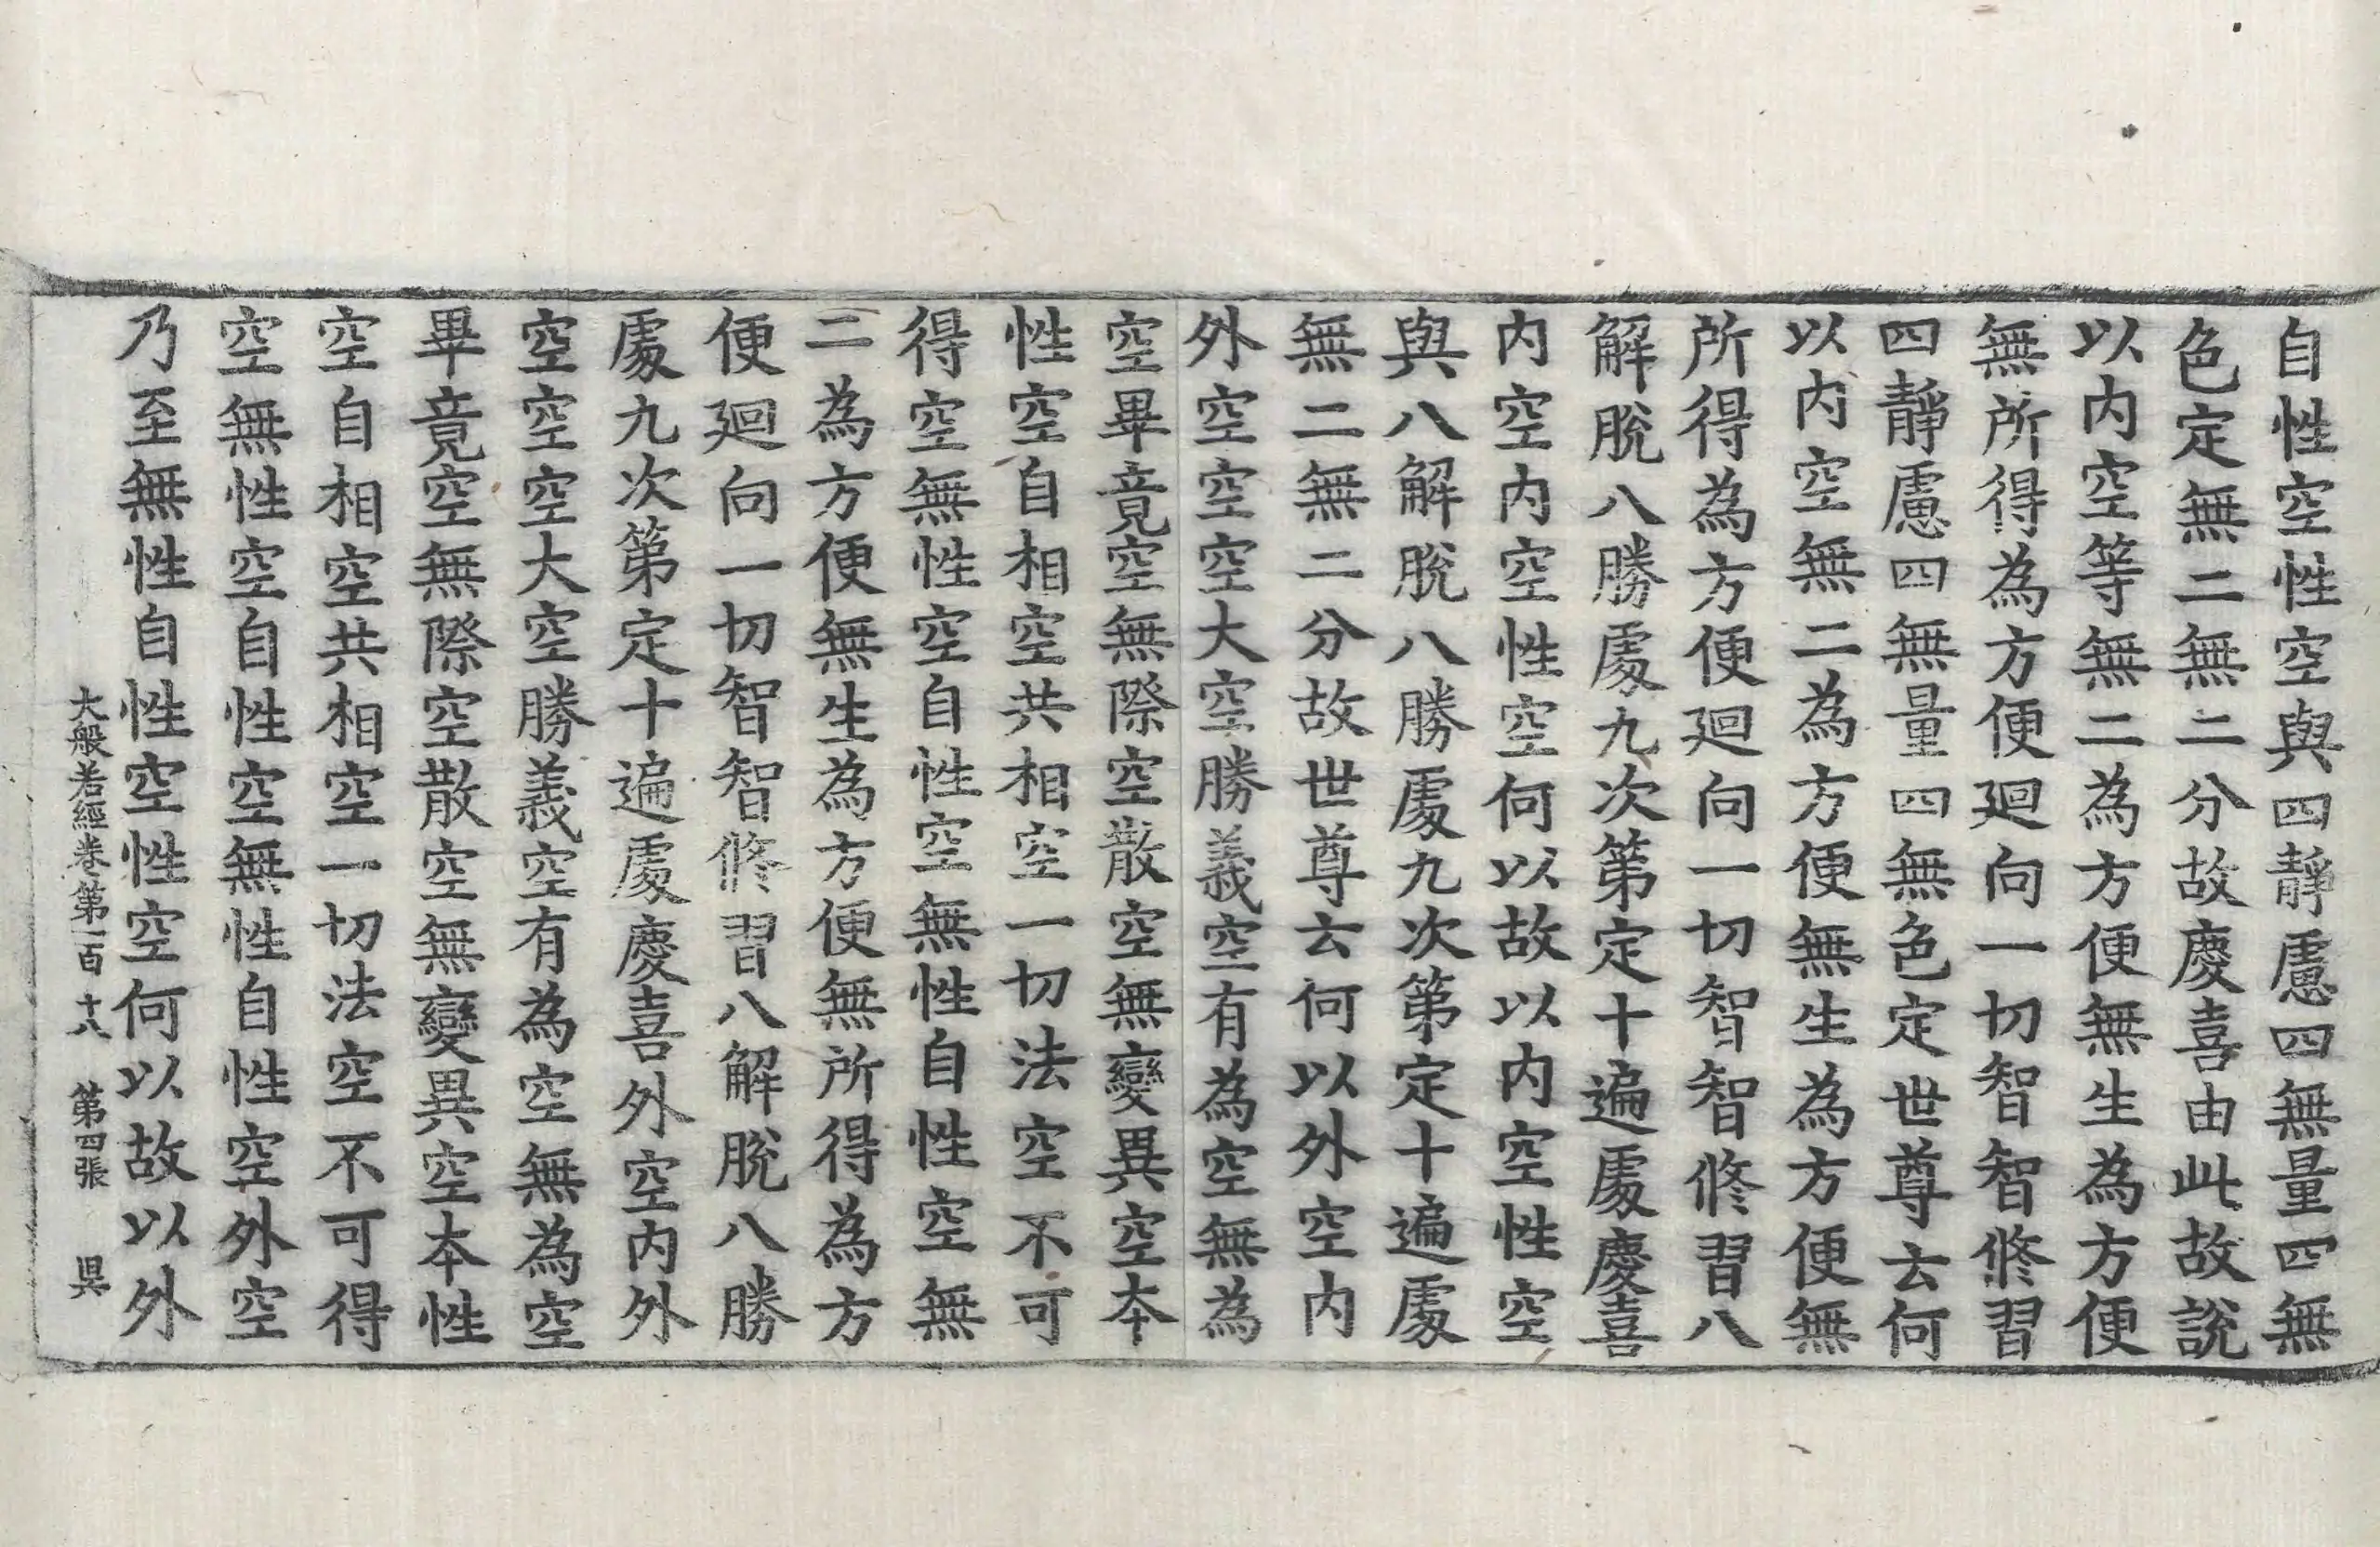 自性空性空與四靜慮四無量四無
色定無二無二分故慶喜由此故說
以內空等無二為方便無生為方便
無所得為方便迴向一切智智修習
四靜慮四無量四無色定世尊云何
以內空無二為方便無生為方便無
所得為方便迴向一切智智修習八
解脫八勝處九次第定十遍處慶喜
內空內空性空何以故以內空性空
與八解脫八勝處九次第定十遍處
無二無二分故世尊云何以外空內
外空空空大空勝義空有為空無為
空畢竟空無際空散空無變異空本
性空自相空共相空一切法空不可
得空無性空自性空無性自性空無
二為方便無生為方便無所得為方
便迴向一切智智修習八解脫八勝
處九次第定十遍處慶喜外空內外
空空空大空勝義空有為空無為空
畢竟空無際空散空無變異空本性
空自相空共相空一切法空不可得
空無性空自性空無性自性空外空
乃至無性自性空性空何以故以外
大般若經卷第一百十八 第四張 㫷